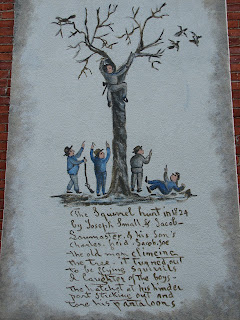 The Squirrel hunt in 1824
by Joseph Small & Jacob
Sawmoster, & his Son's
Charles, Reid, Joe
the old man climeing
the tree. it turned out
to be flying Squirels
& laughter of the boys -
the hatchet at his hinder
part sticking out and
tore his pantaloons